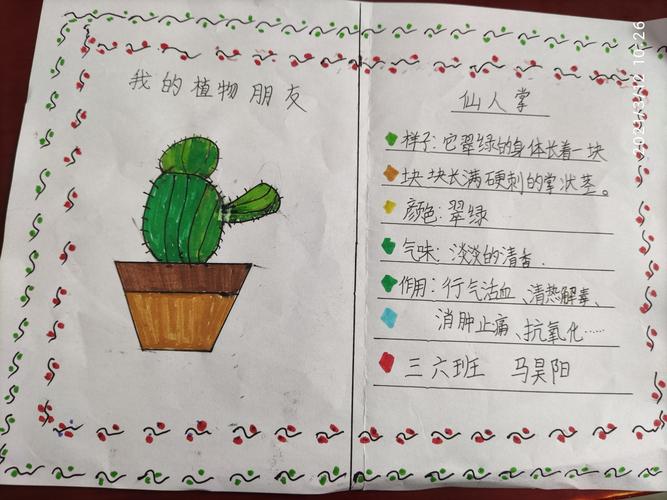 我的植物朋友
仙人掌
样子:它翠绿的身体长着一块
块块长满硬刺的掌状茎。
颜色:翠绿
气味:淡淡的清香.
作用:行气活血、清热解毒、
消肿止痛、抗氧化……
三六班 马昊阳